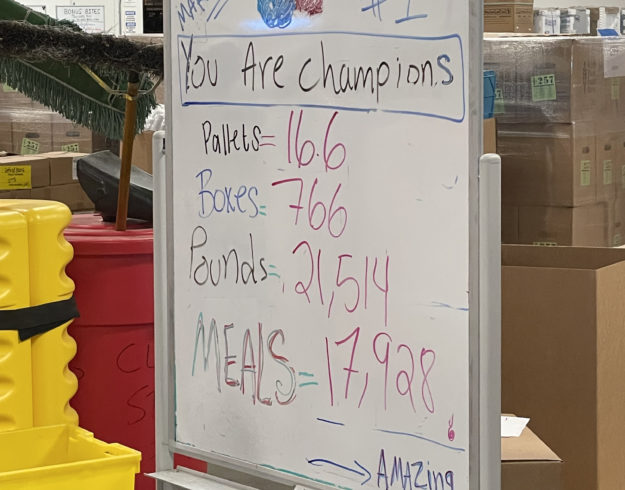 #1
You Are champions
Pallets= 16.6
Boxes= 766
Pounds= 21,514
MEALS= 17,928
→ AMAZing
BONUS BITES
1251